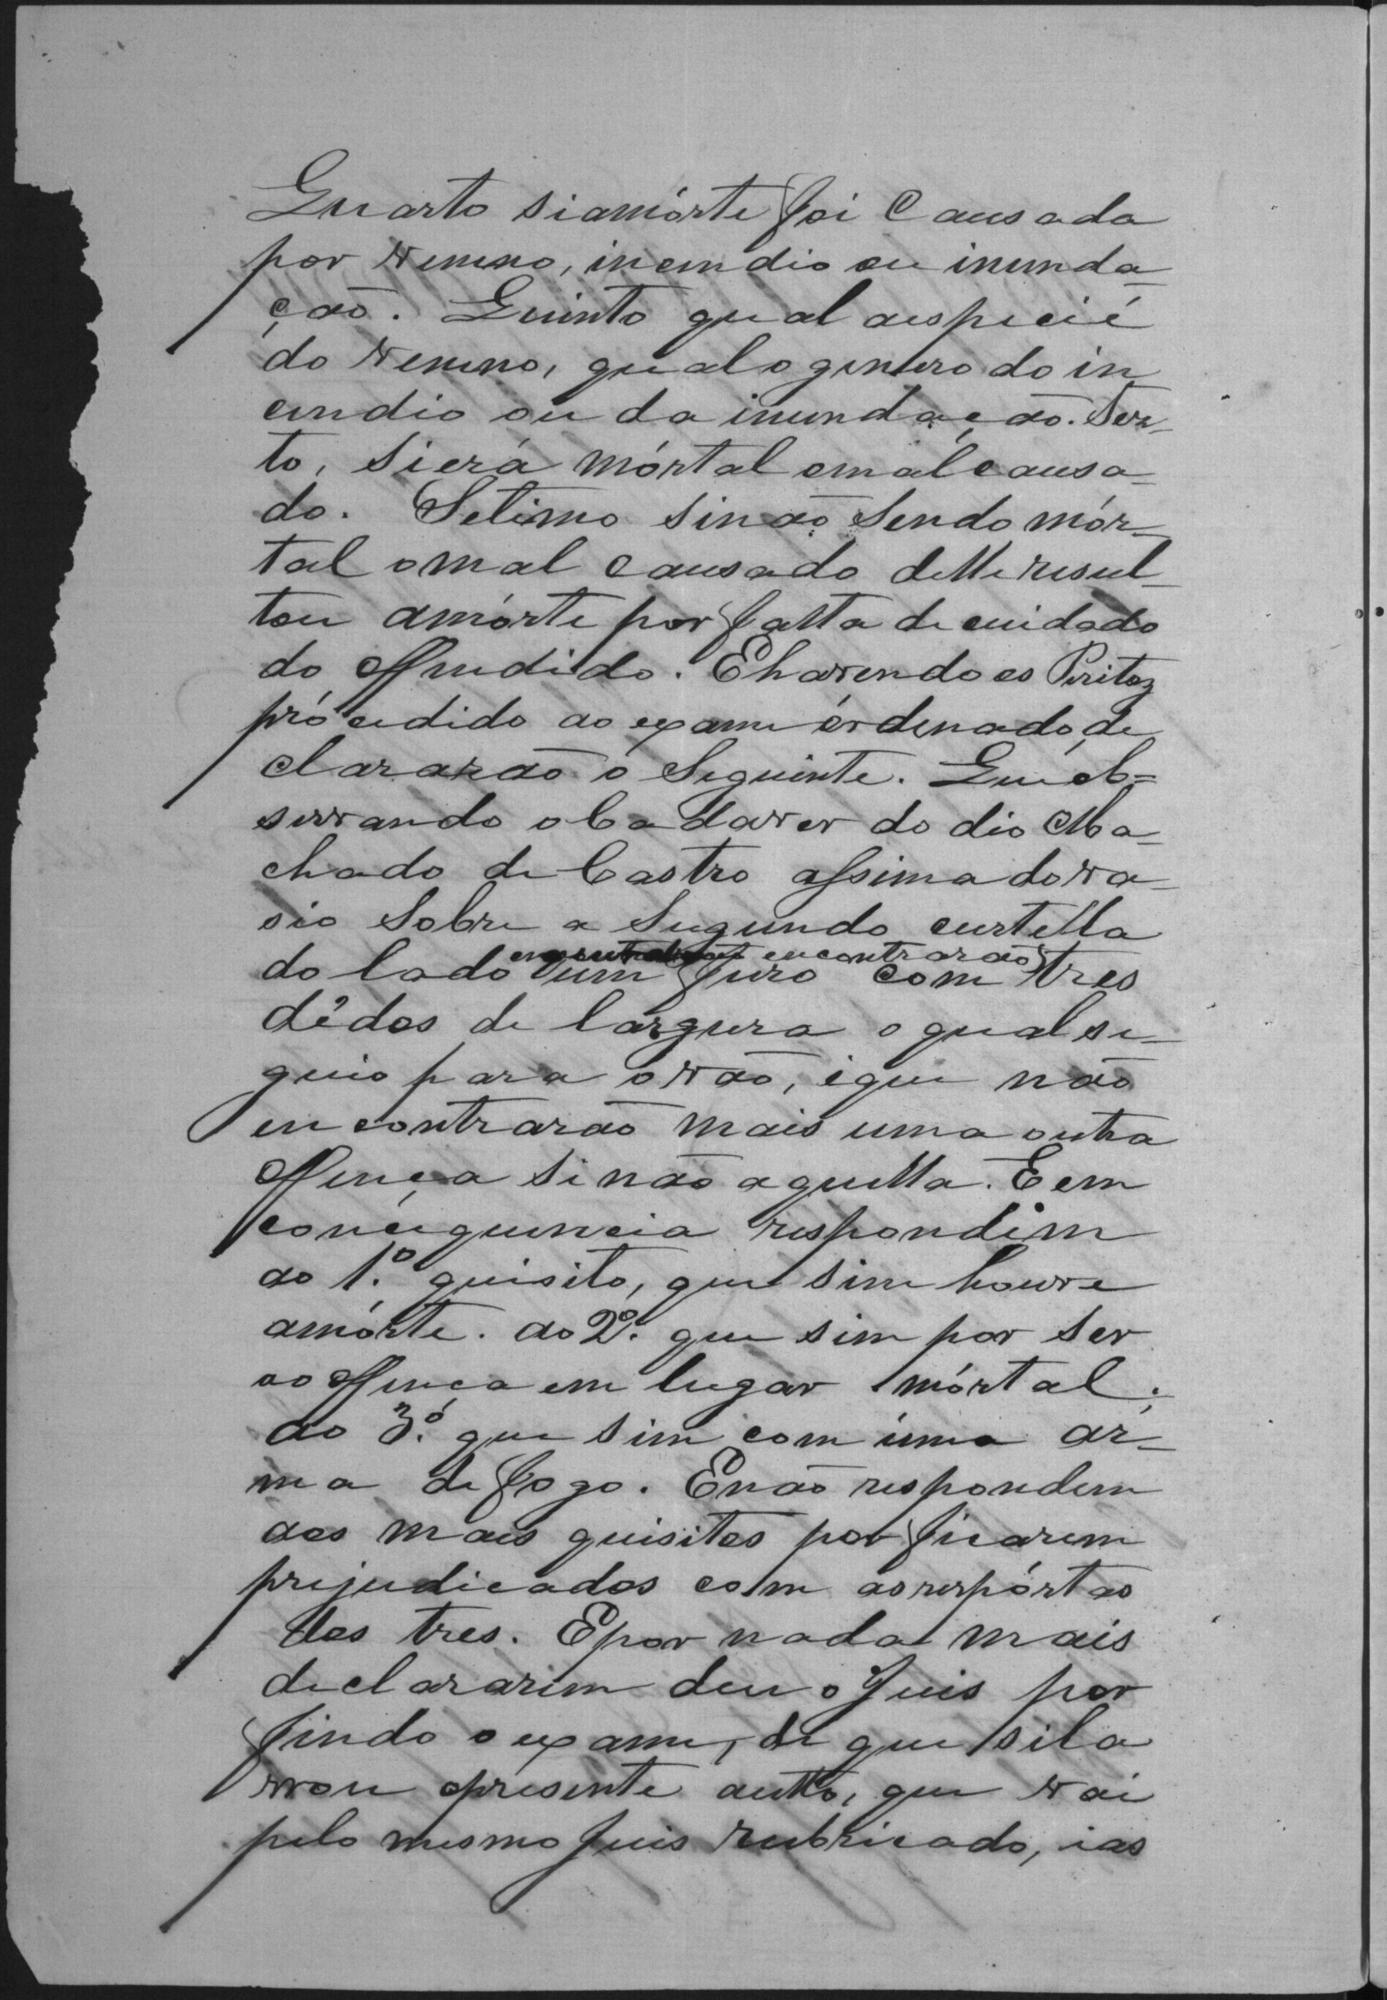 Quarto si a mórte foi Causada
por veneno, incendio ou inunda-
ção. Quinto qual a especie é
do veneno, qual o genero do in
cendio ou da inundação. Sex-
to, si erá mórtal o mal causa-
do. Setimo si não Sendo mór-
tal o mal Causado delle resul-
tou a mórte por falta de cuidado
do Offendido. E havendo os Peritoz
prócedido ao exame órdenado, de
clararão o Seguinte. Que ob-
servando o Cadaver do dio Ma-
chado de Castro assima do va-
sio Sobre a Segundo custella
do lado encontrarão um furo com tres
dêdos de largura o qual se-
guio para o vão, e que não
encontrarão mais uma outra
Offença Si não aquella. E em
conceguencia respondem
ao 1º. quisito, que sim houve
a mórte. ao 2º. que sim por Ser
ao Offença em lugar mórtal.
ao 3º. que sim com úma ar-
ma de fogo. E não respondem
aos mais quisitos por ficarem
prejudicados com as respórtas
dos tres. E por nada mais
declararem deu o Juis por
findo o exame, de que si la
vrou o presente autto, que vai
pelo mesmo Juis rubricado, i as